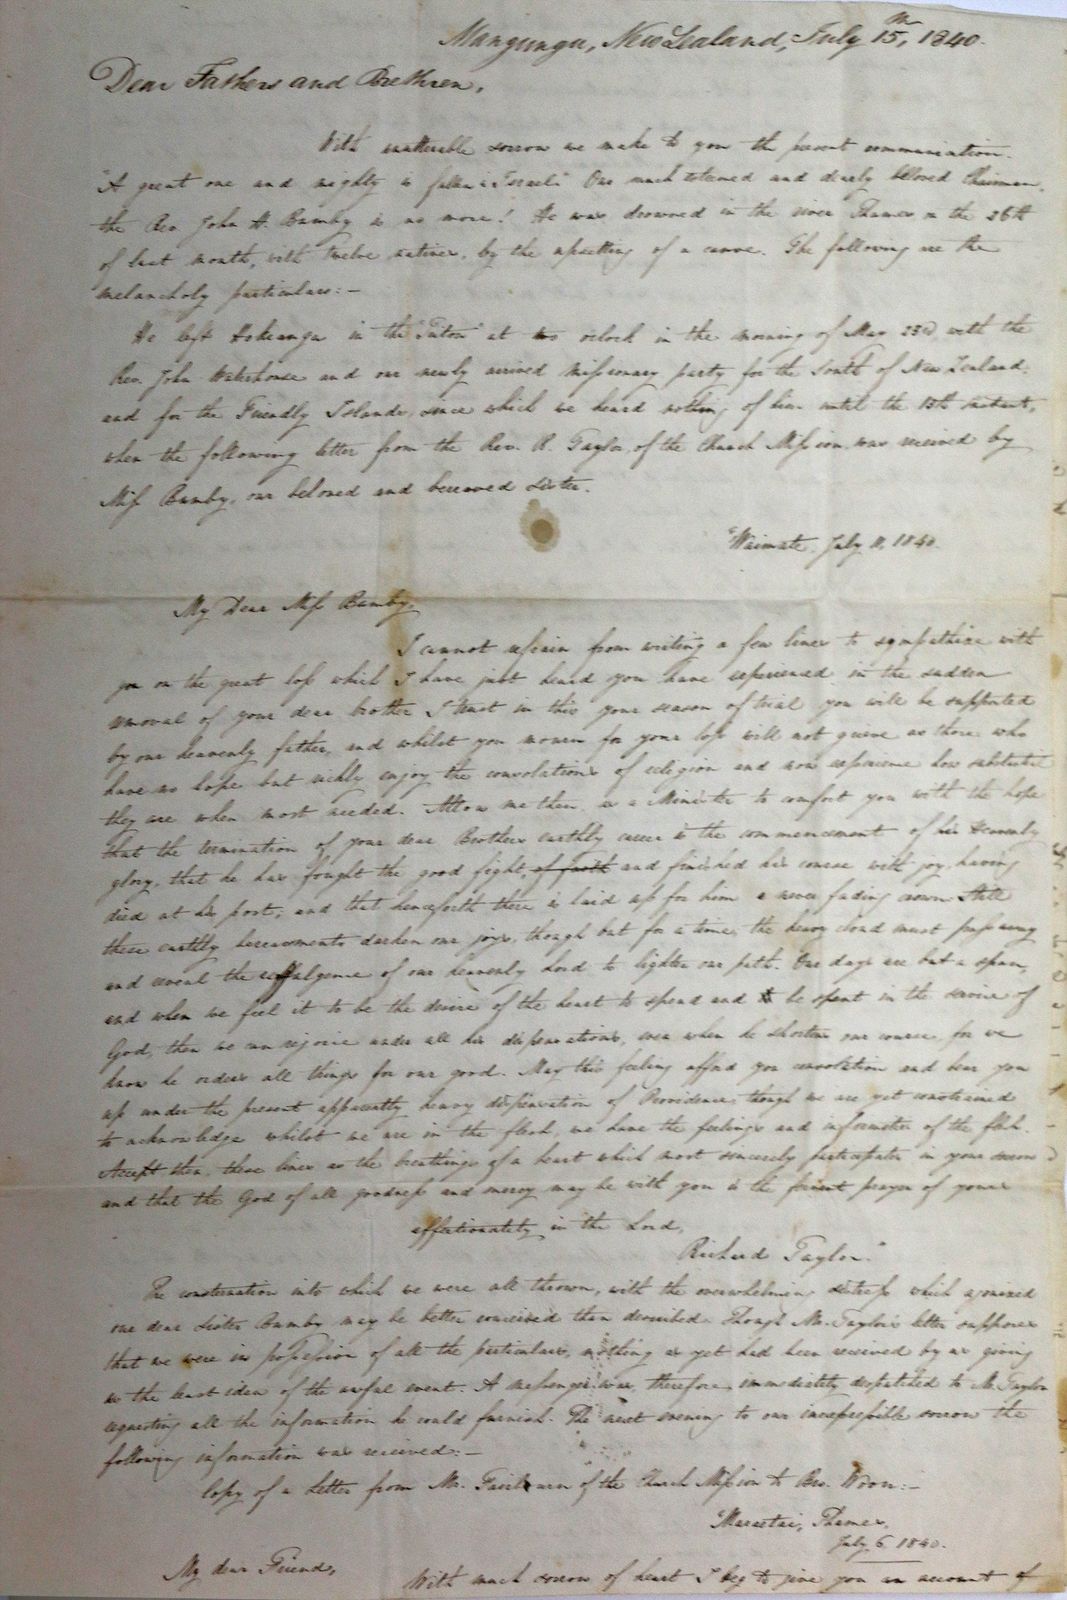 Mangungu, New Zealand, July 15th, 1840.
Dear Fathers and Brethren,
With unutterable sorrow we make to you the present communication.
"A great one and mighty is fallen in Israel." Our much esteemed and dearly beloved Chairman,
the Rev. John H. Bumby is no more! He was drowned in the river Thames on the 26th
of last month, with twelve natives, by the upsetting of a canoe. The following are the
melancholy particulars:—
He left Hokianga in the "Triton" at two o'clock in the morning of May 23d, with the
Rev. John Waterhouse and our newly arrived Missionary party for the South of New Zealand:
and for the Friendly Islands, since which we heard nothing of him until the 13th instant,
when the following letter from the Rev. R. Taylor, of the Church Mission, was received by
Miss Bumby, our beloved and bereaved Sister.
"Waimate. July 11, 1840.
My Dear Miss Bumby,
I cannot refrain from writing a few lines to sympathize with
you on the great loss which I have just heard you have experienced in the sudden
removal of your dear brother I trust in this your season of trial you will be supported
by our heavenly father, and whilst you mourn for your loss will not grieve as those who
have no hope but richly enjoy the consolations of religion and now experience how substantial
they are when most needed. Allow me then, as a Minister to comfort you with the hope
that the termination of your dear Brothers earthly career is the commencement of his Heavenly
glory, that he has fought the good fight, of faith and finished his course with joy, having
died at his post; and that henceforth there is laid up for him a never fading crown. Still
these earthly bereavements darken our joys, though but for a time, the heavy cloud must pass away
and reveal the effulgence of our heavenly Lord to lighten our path. Our days are but a span,
and when we feel it to be the desire of the heart to spend and be spent in the service of
God, then we can rejoice under all his dispensations, even when he shortens our course, for we
know he orders all things for our good. May this feeling afford you consolation and bear you
up under the present apparently heavy dispensation of Providence, though we are yet constrained
to acknowledge whilst we are in the flesh, we have the feelings and infirmities of the flesh.
Accept then, these lines as the breathings of a heart which most sincerely participates in your sorrow
and that the God of all goodness and mercy may be with you is the fervent prayer of yours
affectionately in the Lord,
Richard Taylor."
The consternation into which we were all thrown, with the overwhelming distress which agonized
our dear Sister Bumby may be better conceived than described. Though Mr. Taylor's letter supposes
that we were in possession of all the particulars, nothing as yet had been received by us giving
us the least idea of the awful event. A messenger was, therefore, immediately despatched to Mr. Taylor
requesting all the information he could furnish. The next evening to our inexpressible sorrow the
following information was received:—
Copy of a Letter from Mr. Fairburn of the Church Mission to Bro. Woon:—
"Maraetai, Thames,
July 6, 1840.
My dear Friend,
With much sorrow of heart I beg to give you an account of